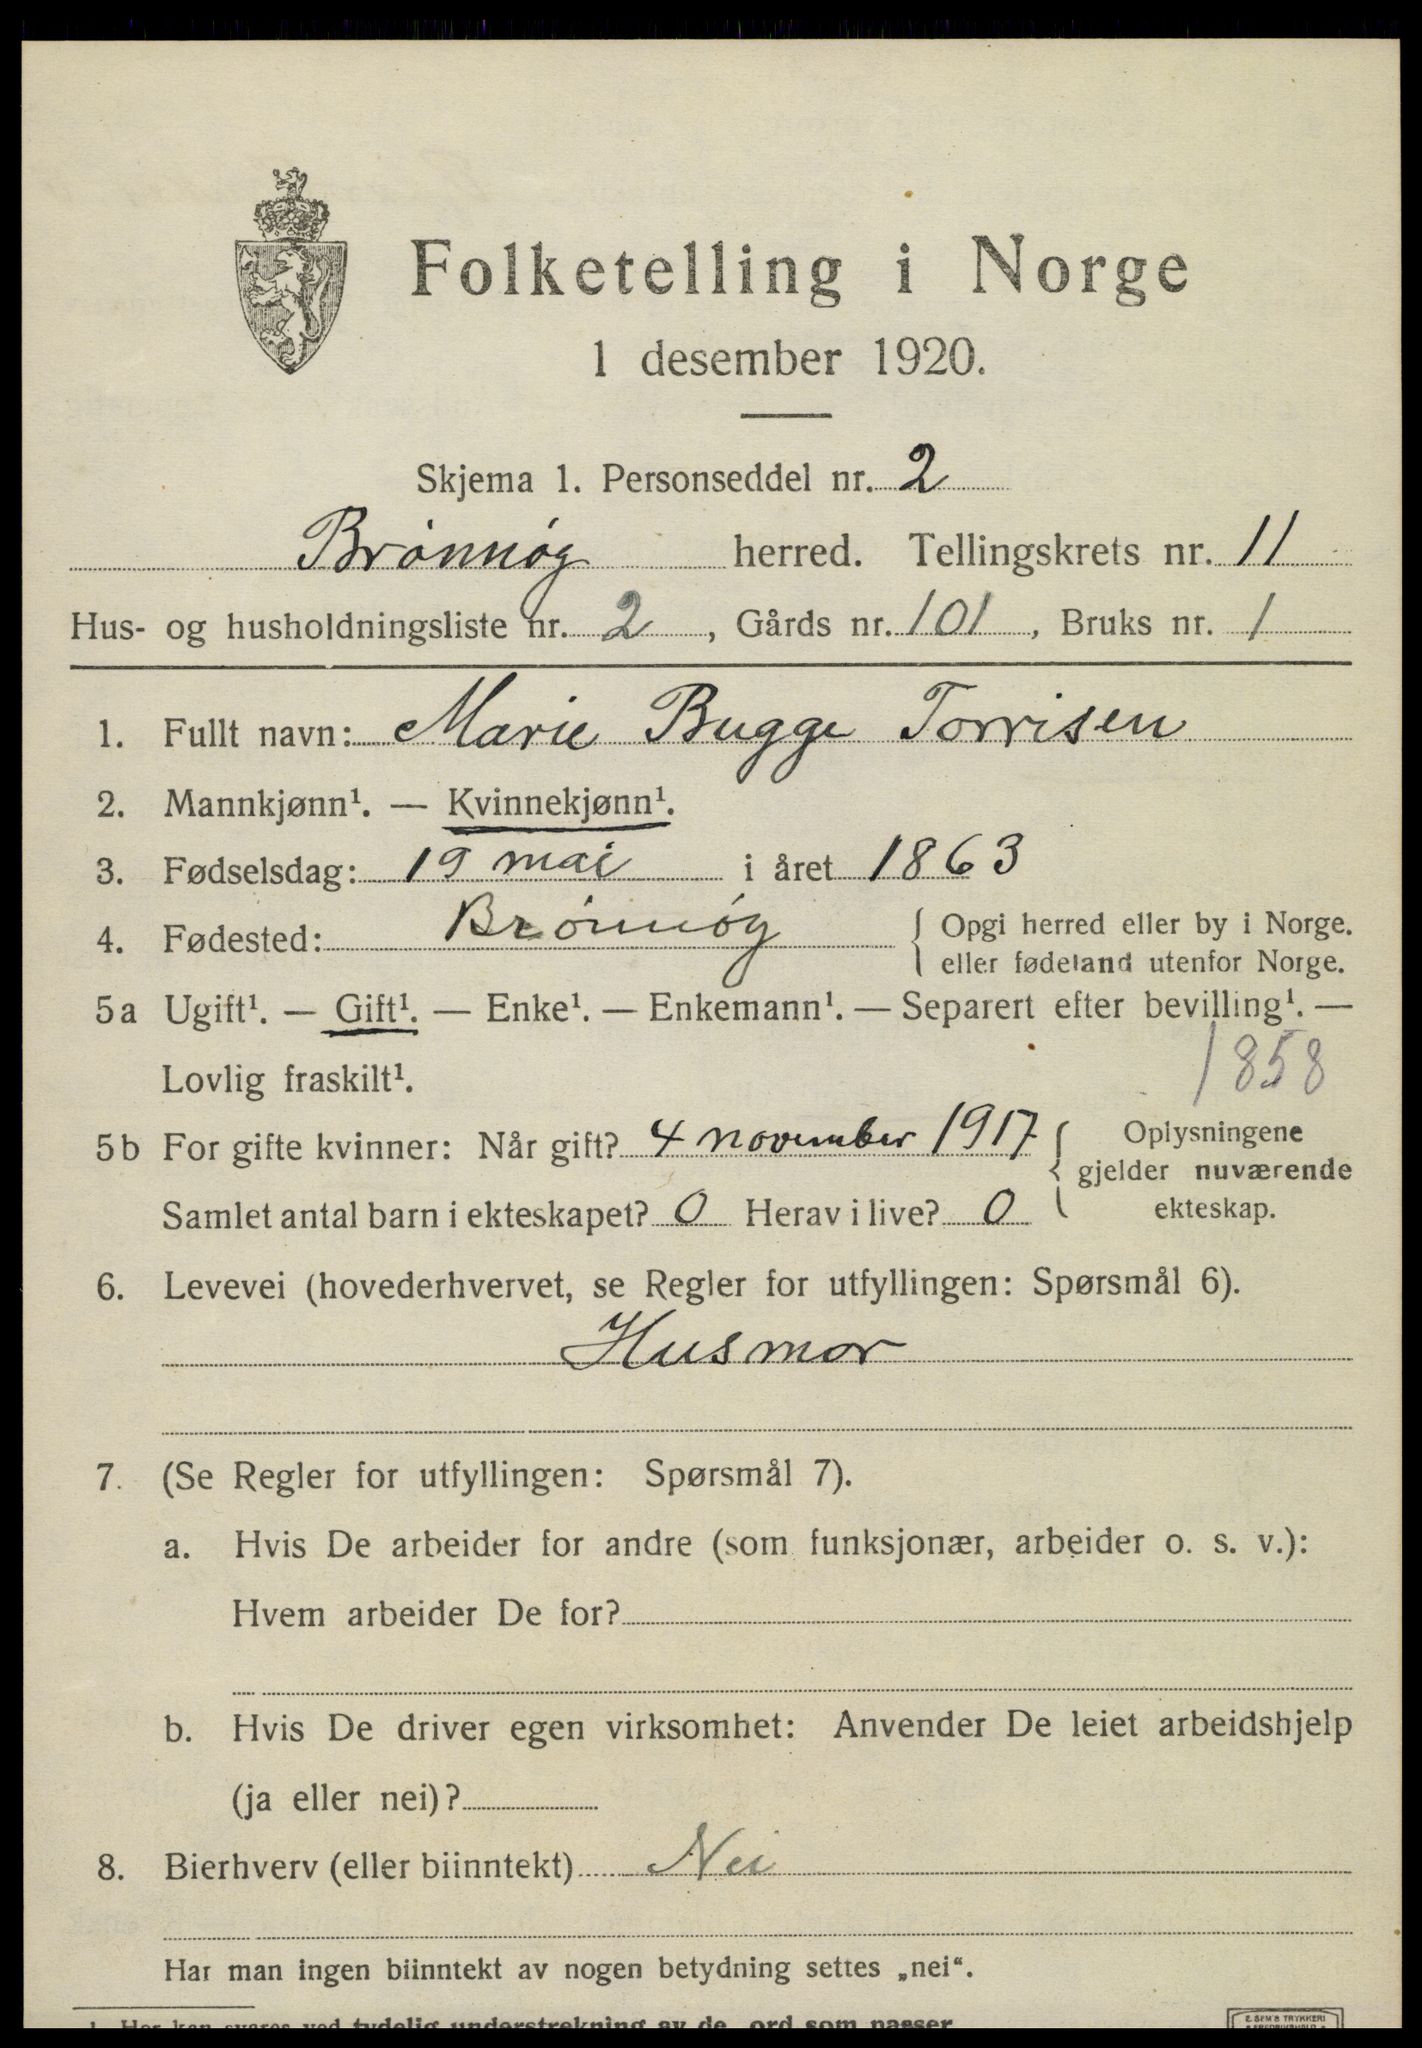 Folketelling i Norge
1 desember 1920.
Skjema 1. Personseddel nr. 2
Brønnøy herred. Tellingskrets nr. 11
Hus- og husholdningsliste nr. 2, Gårds nr. 101, Bruks nr. 1
1. Fullt navn: Marie Bugge Torrisen
2. Mannkjønn¹. — Kvinnekjønn¹.
3. Fødselsdag: 19 mai i året 1863
4. Fødested: Brønnøy { Opgi herred eller by i Norge.
eller fødeland utenfor Norge.
5a Ugift¹. — Gift¹. — Enke¹. — Enkemann¹. — Separert efter bevilling¹. —
Lovlig fraskilt¹. 1858
5b For gifte kvinner: Når gift? 4 november 1917
Samlet antal barn i ekteskapet? 0 Herav i live? 0
{ Oplysningene
gjelder nuværende
ekteskap.
6. Levevei (hovederhvervet, se Regler for utfyllingen: Spørsmål 6).
Husmor
7. (Se Regler for utfyllingen: Spørsmål 7).
a. Hvis De arbeider for andre (som funksjonær, arbeider o. s. v.):
Hvem arbeider De for?
b. Hvis De driver egen virksomhet: Anvender De leiet arbeidshjelp
(ja eller nei)?
8. Bierhverv (eller biinntekt) Nei
Har man ingen biinntekt av nogen betydning settes „nei“.
1. Her kan svares ved tydelig understrekning av de ord som passer.
E. SEM'S TRYKKERI
FREDRIKSHALD